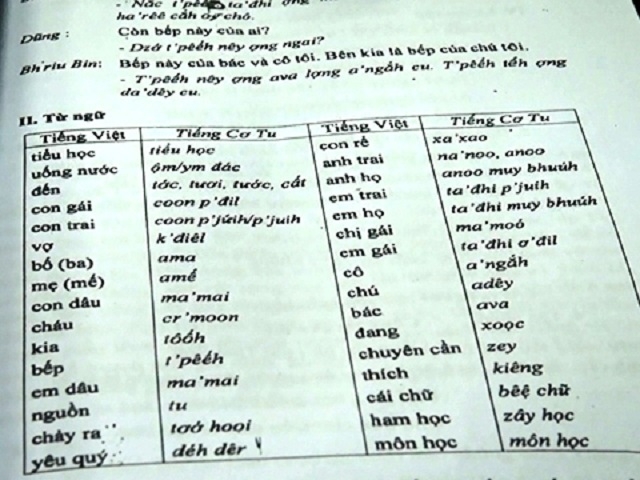 - Năc t'pêêh ta'đhi ơng
ha'rêê cắh chô.
Dũng : Còn bếp này của ai?
- Dzớ t'pêếh nêy ơng ngai?
Bh'riu Bin: Bếp này của bác và cô tôi. Bên kia là bếp của chú tôi.
- T'pêếh nêy ơng ava lơng a'ngắh cu. T'pêếh têh ơng
da'dêy cu.
II. Từ ngữ
Tiếng Việt Tiếng Cơ Tu Tiếng Việt Tiếng Cơ Tu
tiểu học tiểu học con rể xa'xao
uống nước ôm/ym đác anh trai na'noo, anoo
đến tớc, tươi, tước, cắt anh họ anoo muy bhuúh
con gái coon p'đil em trai ta'đhi p'juih
con trai coon p'jứih/p'juih em họ ta'đhi muy bhuúh
vợ k'điêl chị gái ma'moó
bố (ba) ama em gái ta'đhi ơ'đil
mẹ (mế) amế cô a'ngắh
con dâu ma'mai chú adêy
cháu cr'moon bác ava
kia tôốh đang xoọc
bếp t'pêếh chuyên cần zey
em dâu ma'mai thích kiêng
nguồn tu cái chữ bêệ chữ
chảy ra tơớ hooi ham học zây học
yêu quý déh dêr môn học môn học